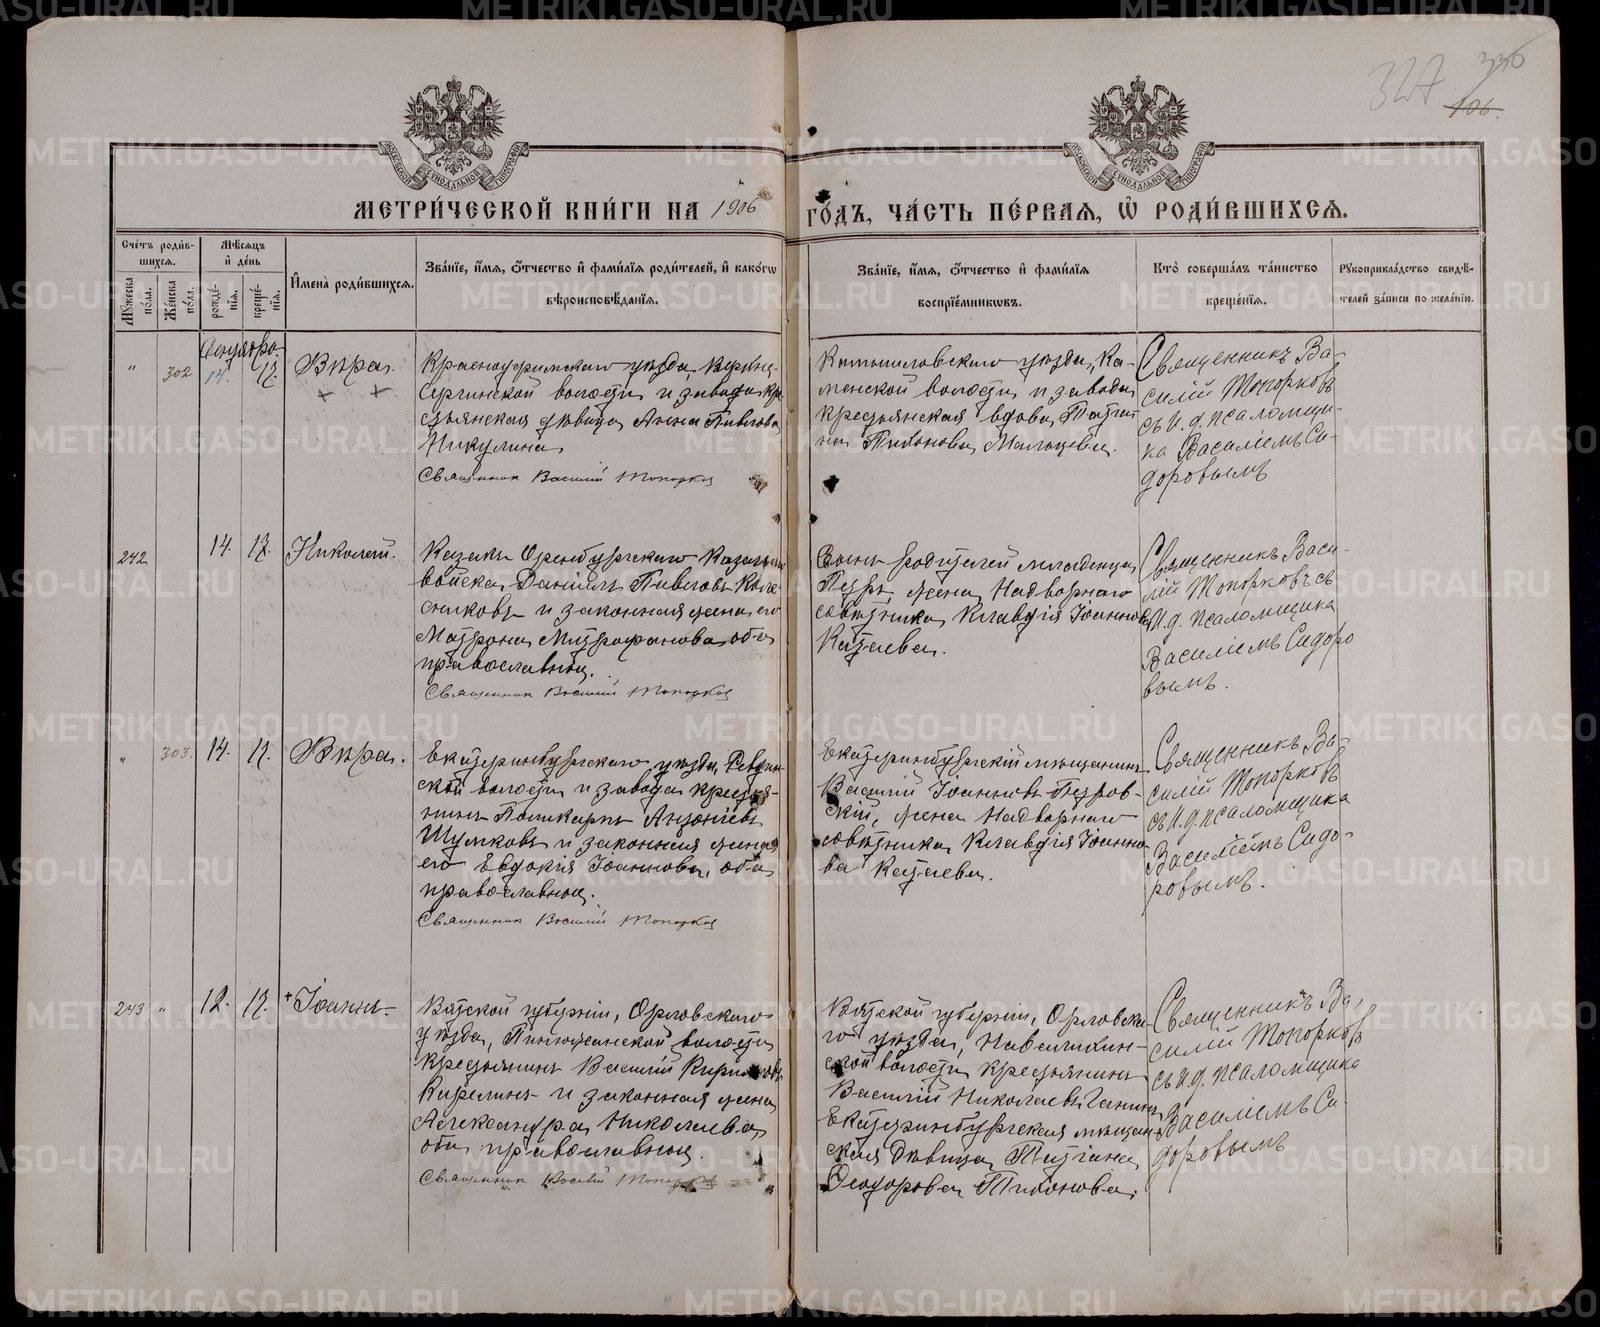 METRIKI.GASO-URAL.RU
336
327
106.
МЕТРИ́ЧЕСКОЙ КНИ́ГИ НА 1906 ГО́ДЪ, ЧА́СТЬ ПЕ́РВАЯ, Ѽ РОДИ́ВШИХСЯ.
Сче́тъ роди́вшихся.
Мꙋ́жеска по́ла.
Же́нска по́ла.
Мѣ́сяцъ и҆ де́нь
рожде́нїя.
креще́нїя.
И҆мена̀ роди́вшихся.
Зва́нїе, и҆́мя, ѻ҆́тчество и҆ фами́лїя роди́телей, и҆ како́гѡ
вѣроисповѣ́данїя.
Зва́нїе, и҆́мя, ѻ҆́тчество и҆ фами́лїя
воспрїе́мниковъ.
Кто̀ соверша́лъ та́инство
креще́нїя.
Рꙋкоприкла́дство свидѣ́-
телей за́писи по жела́нїю.
Сентября
" 302 14. 17. Вѣра.
Красноуфимскаго уѣзда, Верхне-
Сергинской волости и завода кре
стьянская дѣвица Анна Павлова
Никулина
Священник Василий Топорков
Камышловскаго уѣзда, Ка-
менской волости и завода
крестьянская вдова Татиа
на Тихонова Мальцева.
Священникъ Ва-
силій Топорковъ
съ И. д. псаломщи-
ка Василіемъ Си-
доровымъ
242 14. 17. Николай.
Казакъ Оренбургскаго Казачьяго
войска Даніилъ Павловъ Коле-
сниковъ и законная жена его
Матрона Митрофанова, оба
православные.
Священник Василий Топорков
Сынъ родителей младенца
Петръ, жена Надворнаго
совѣтника Клавдія Іоаннова
Катаева.
Священникъ Васи-
лій Топорковъ съ
И. д. псаломщика
Василіемъ Сидоро
вымъ.
" 303. 14. 17. Вѣра.
Екатеринбургскаго уѣзда, Ревдин-
ской волости и завода крестья-
нинъ Поликарпъ Антоніевъ
Шумковъ и законная жена
его Евдокія Іоаннова, оба
православные.
Священник Василий Топорков
Екатеринбургскій мѣщанинъ
Василій Іоанновъ Петров-
скій, жена Надворнаго
совѣтника Клавдія Іоанно
ва Катаева.
Священникъ Ва-
силій Топорковъ
съ И. д. псаломщика
Василіемъ Сидо-
ровымъ.
243 " 12. 17. + Іоаннъ
Вятской губерніи, Орловскаго
уѣзда, Пинюжанской волости
крестьянинъ Василій Кириловъ
и законная жена
Александра Николаева,
оба православные.
Священник Василий Топорков
Вятской губерніи, Орловска-
го уѣзда,
ской волости крестьянинъ
Василій Николаевъ
Екатеринбургская мѣщан-
ская дѣвица Татіана
Ѳеодорова Тихонова.
Священникъ Ва-
силій Топорковъ
съ И. д. псаломщика
Василіемъ Си-
доровымъ